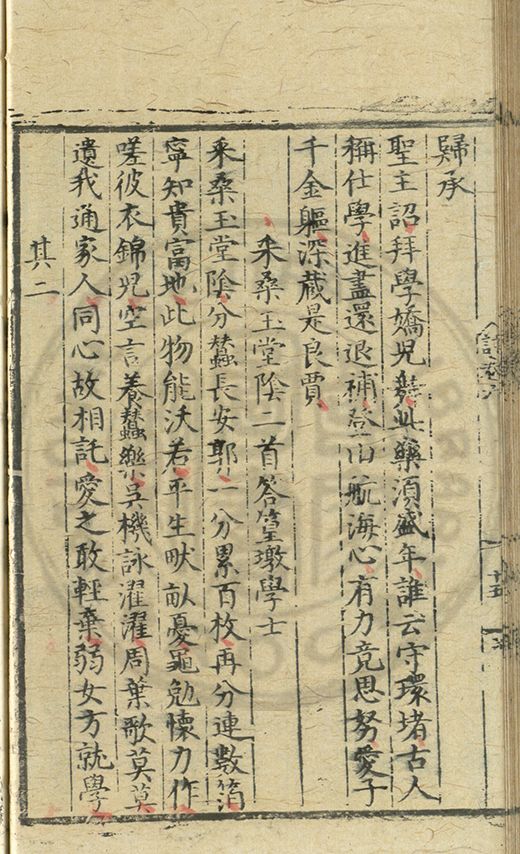 歸承
聖主詔拜學嬌兒舞此藥須盛年誰云守環堵古人
稱仕學進盡還退補登山航海心有力竟思努愛子
千金軀深藏是良賈
采桑玉堂陰二首答篁墩學士
采桑玉堂陰分蠶長安郭一分累百枚再分連數箔
寧知貴富地此物能沃若平生畎畝憂黽勉懷力作
嗟彼衣錦兒空言養蠶樂吳機詠濯濯周葉歌莫莫
遺我通家人同心故相託愛之敢輕棄弱女方就學
其二
十五